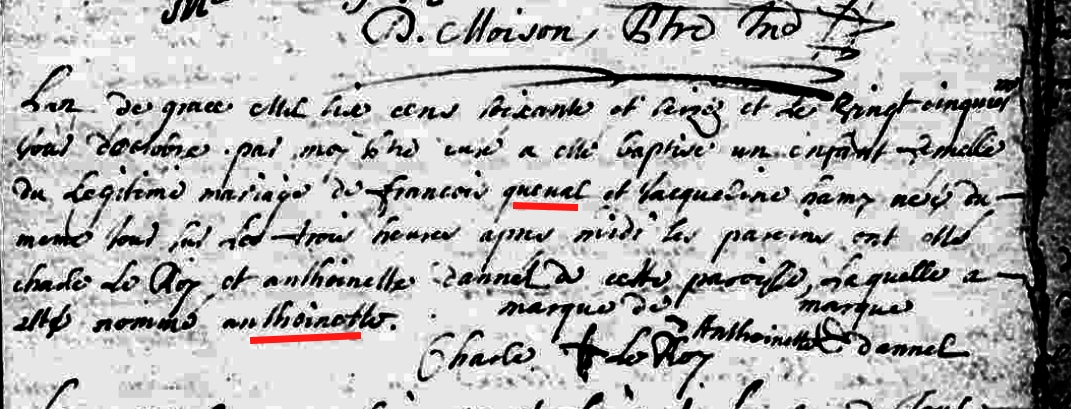 D. Moison, Pbre Ind
Lan de grace Mil six cens soixante et seize et le vingt cinquies
jour doctobre par moy pbre curé a esté baptisé un enfant femelle
du legitime mariage de francois queval et Jacqueline hamy nesé du
meme jour sur les trois heures apres midi les parains ont esté
charle le Roy et anthoinette dannel de cette paroisse, laquelle a
esté nommé anthoinette. marque de marque
Charle le Roy d'Anthoinette dannel